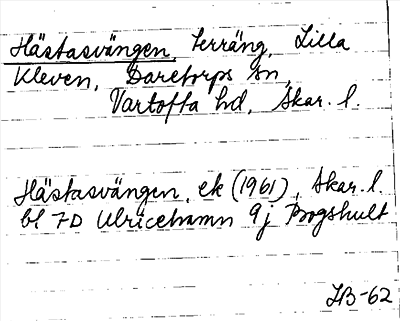 Hästasvängen, terräng, Lilla
Kleven, Daretorps sn,
Vartofta hd, Skar. l.
Hästasvängen, ek (1961), Skar. l.
bl 7D Ulricehamn 9j Bogshult
IB-62